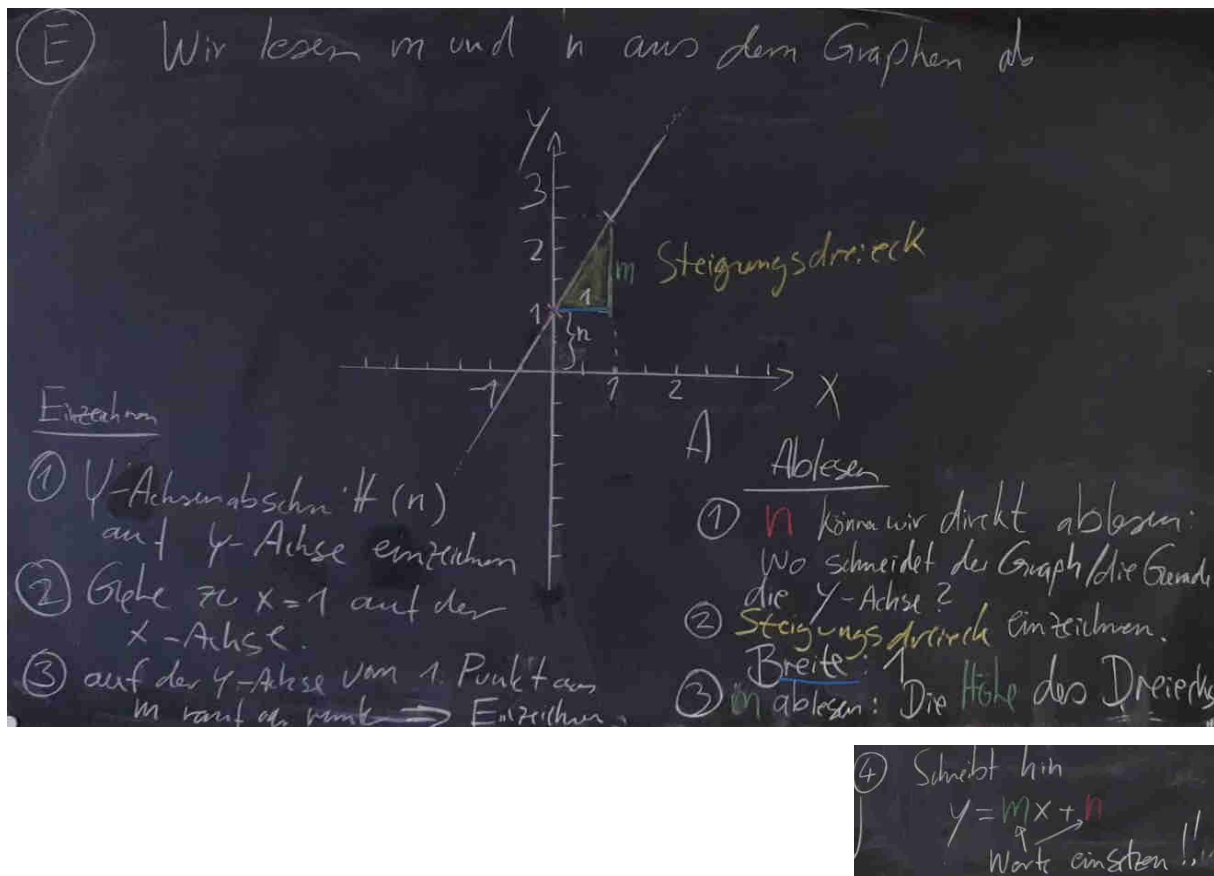 E Wir lesen m und n aus dem Graphen ab
y
3
2
m Steigungsdreieck
1
1
n
-1 1 2 X
A
Einzeichnen
1 Y-Achsenabschnitt (n)
auf y-Achse einzeichnen
2 Gehe zu x=1 auf der
X-Achse.
3 auf der Y-Achse vom 1. Punkt aus
m rauf od. runter → Einzeichnen.
Ablesen
1 n können wir direkt ablesen:
Wo schneidet der Graph/die Gerade
die Y-Achse?
2 Steigungsdreieck einzeichnen.
Breite: 1
3 m ablesen: Die Höhe des Dreiecks
4 Schreibt hin
y = mx + n
Werte einsetzen!!